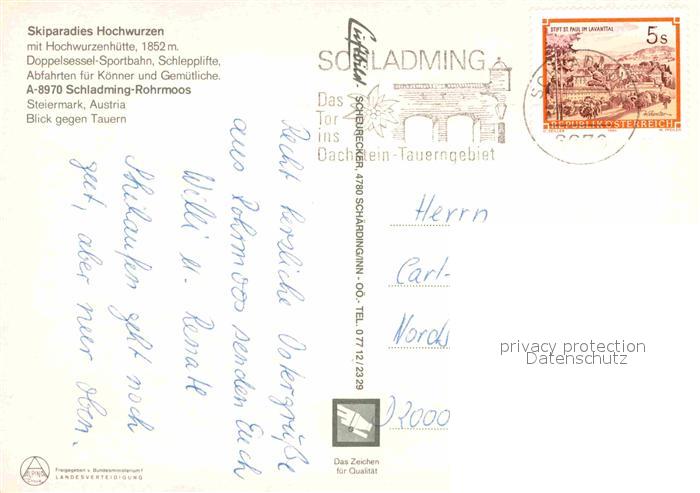 Skiparadies Hochwurzen
mit Hochwurzenhütte, 1852 m.
Doppelsessel-Sportbahn, Schlepplifte,
Abfahrten für Könner und Gemütliche.
A-8970 Schladming-Rohrmoos
Steiermark, Austria
Blick gegen Tauern
SCHLADMING
Das
Tor
ins
Dachstein-Tauerngebiet
STIFT ST. PAUL IM LAVANTTAL
5 s
REPUBLIK ÖSTERREICH
Luftbild - SCHEURECKER, 4780 SCHÄRDING/INN - OÖ.- TEL. 0 77 12 / 23 29
Recht herzliche Ostergrüße
aus Rohrmoos senden Euch
Willi u. Renate
Skilaufen geht noch
gut, aber nur oben.
Herrn
Carl-
Nords
D2000
privacy protection
Datenschutz
Das Zeichen
für Qualität
ALPINA
Freigegeben v. Bundesministerium f
LANDESVERTEIDIGUNG